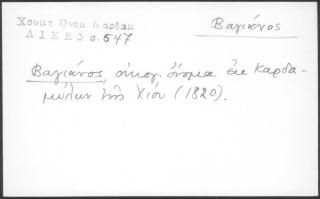 Χουμτ Ονομ Καρδαμ
Δ Ι Ε Ε 3 σ.547
Βαγιάνος
Βαγιάνος, οἰκογ. ὄνομα ἐκ Καρδα-
μύλων τῆς Χίου (1820).